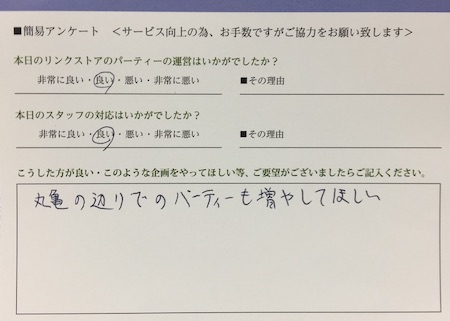 ■簡易アンケート　＜サービス向上の為、お手数ですがご協力をお願い致します＞
本日のリンクストアのパーティーの運営はいかがでしたか？
非常に良い・良い・悪い・非常に悪い　■その理由
本日のスタッフの対応はいかがでしたか？
非常に良い・良い・悪い・非常に悪い　■その理由
こうした方が良い・このような企画をやってほしい等、ご要望がございましたらご記入ください。
丸亀の辺りでのパーティーも増やしてほしい